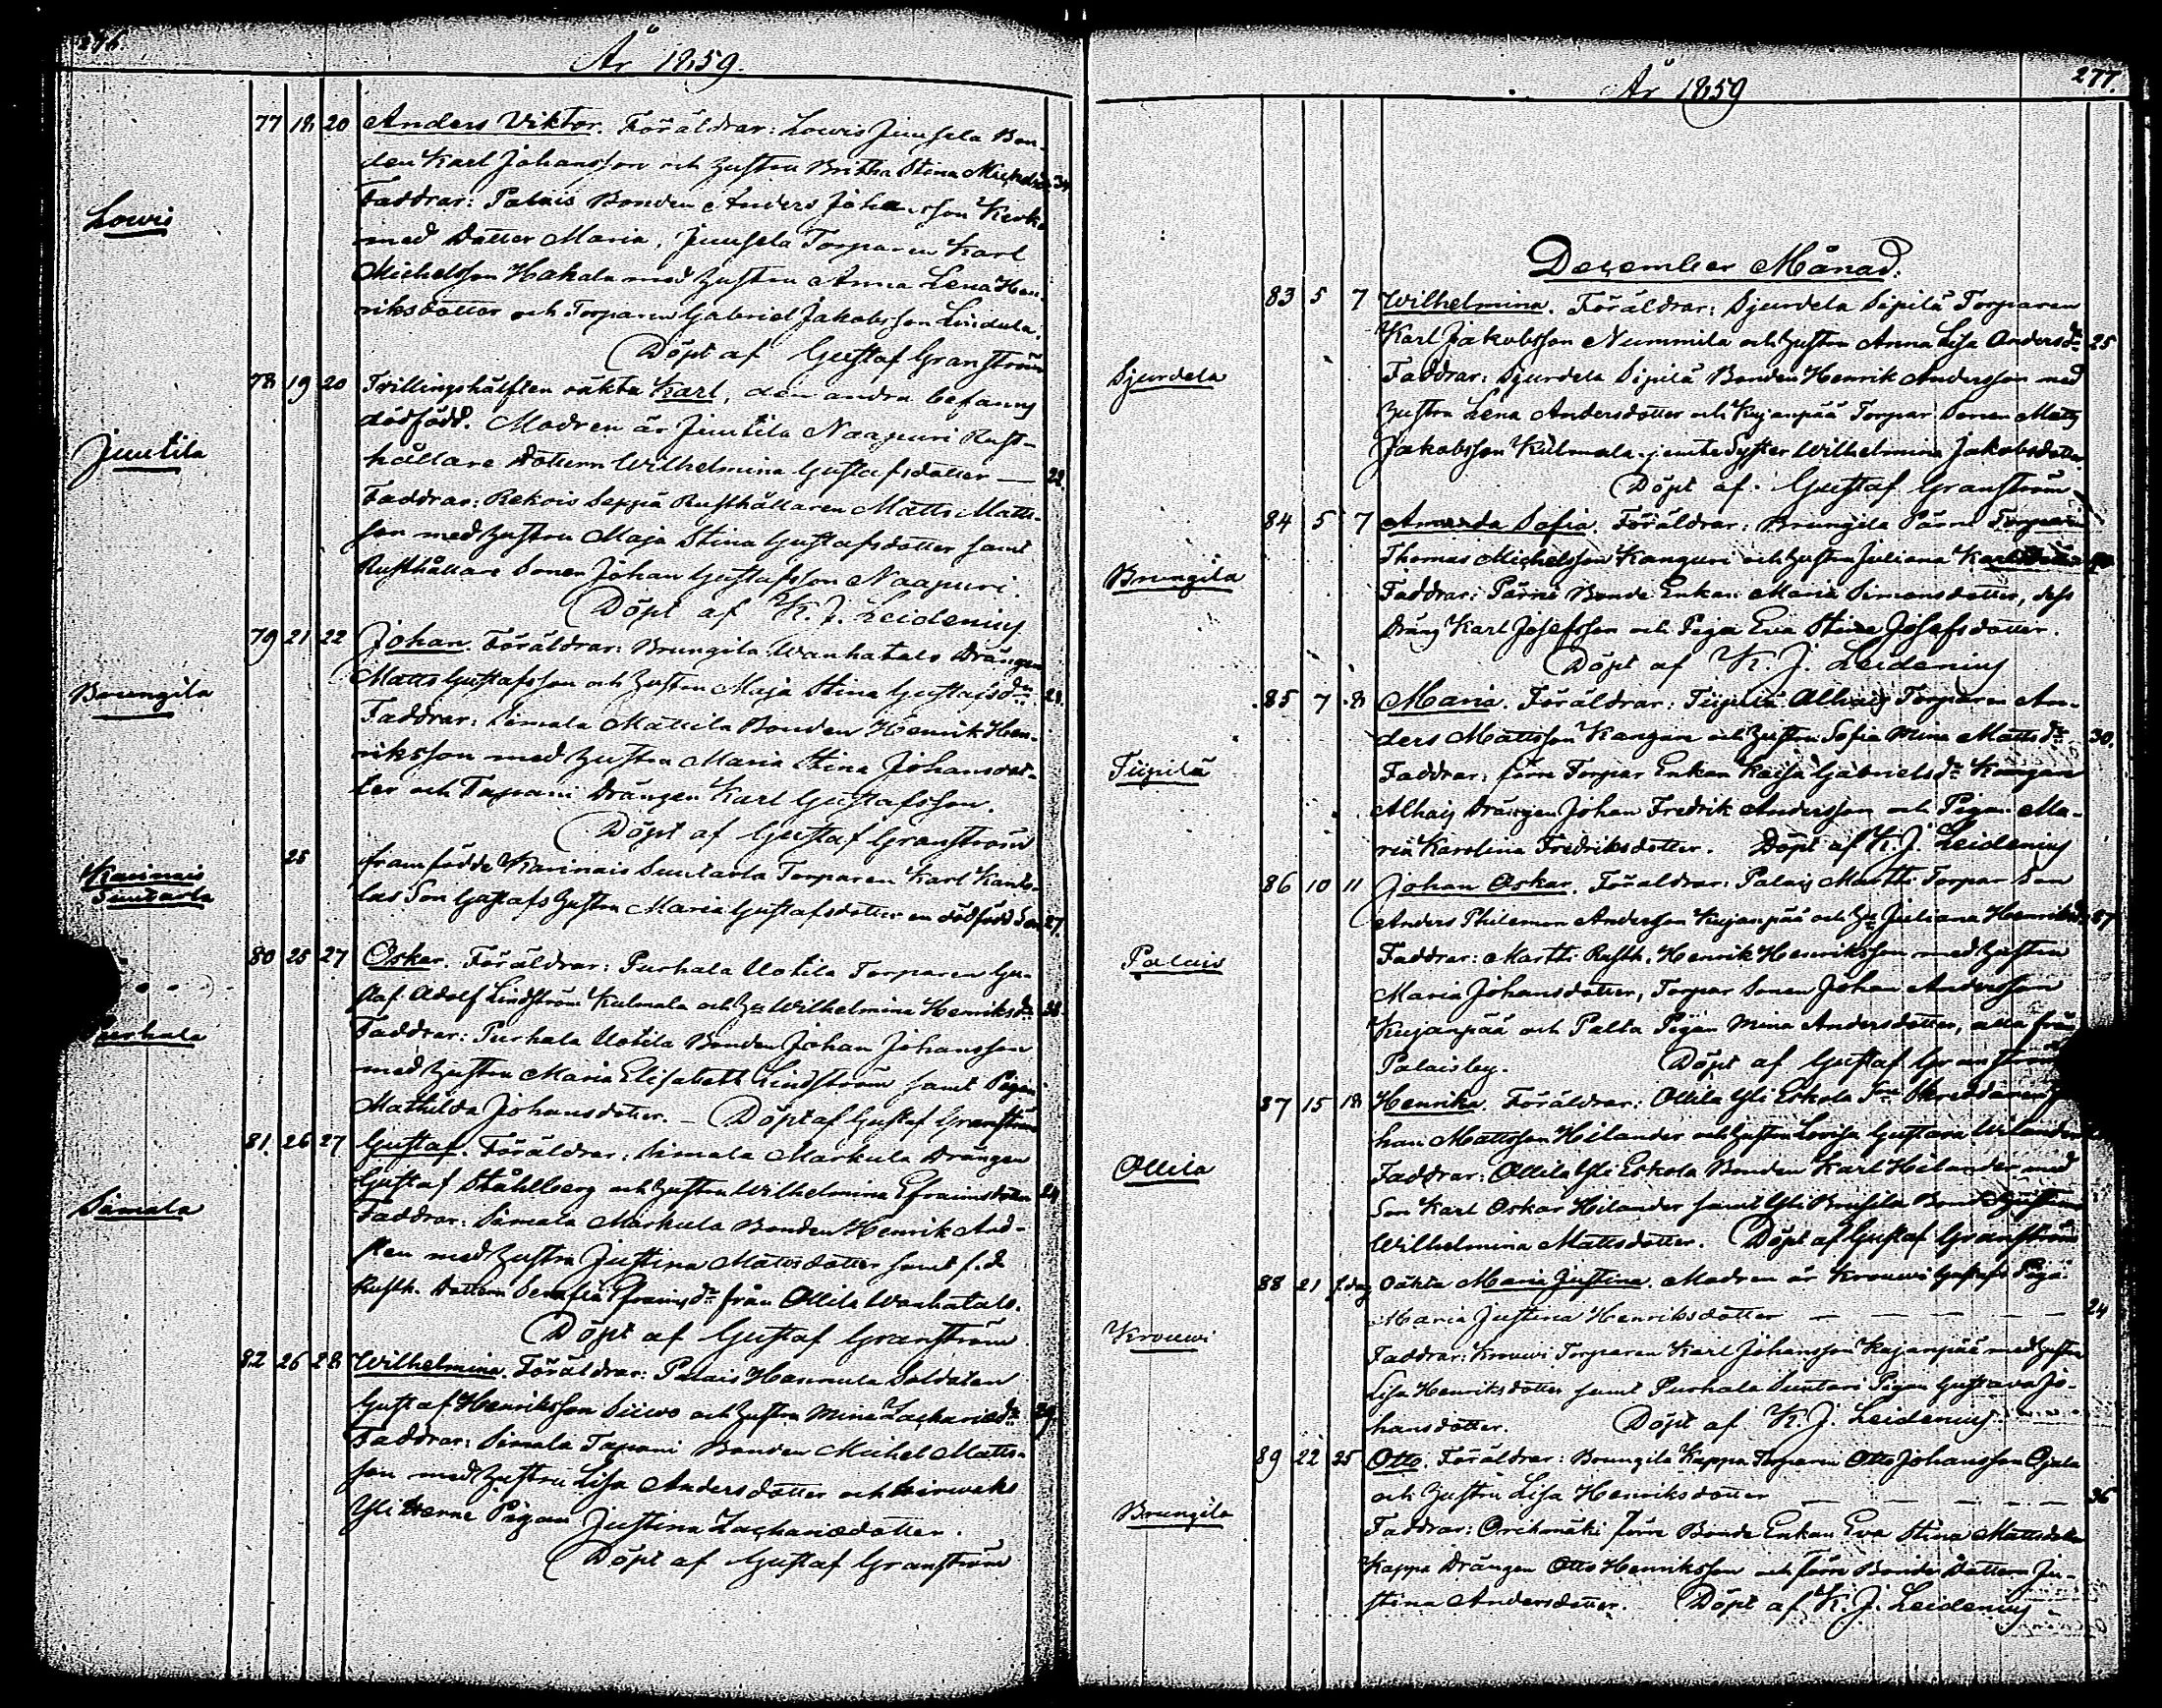 276.
År 1859.
77 18 20 Anders Viktor. Föräldrar: Lowis Juusela Bon-
den Karl Johansson och hustru Britha Stina Michelsdr 34
Lowis
Faddrar: Palais Bonden Anders Johansson Kerko
med Dotter Maria, Juusela Torparen Karl
Michelsson Hakala med hustru Anna Lena Hen-
riksdotter och Torparen Gabriel Jakobsson Lindula.
Döpt af Gustaf Granström
78 19 20 Tvillingshälften oäkta Karl, den andra befanns
dödfödd. Modren är Juutila Naapuri Rust-
Juutila
hållare Dottern Wilhelmina Gustafsdotter — 22.
Faddrar: Rekois Seppä Rusthållaren Matts Matts-
son med hustru Maja Stina Gustafsdotter samt
Rusthållare Sonen Johan Gustafsson Naapuri.
Döpt af K. J. Leidenius
79 21 22 Johan. Föräldrar: Brungila Wanhatalo Drängen
Matts Gustafsson och hustru Maja Stina Gustafsdr 28.
Brungila
Faddrar: Simala Mattila Bonden Henrik Hen-
riksson med hustru Maria Stina Johansdot-
ter och Tapani Drängen Karl Gustafsson.
Döpt af Gustaf Granström
25 framfödde Karinais Suutarla Torparen Karl
Karinais
Suutarla
las Son Gustafs hustru Maria Gustafsdotter en dödfödd Son 27.
80 25 27 Oskar. Föräldrar: Purhala Uotila Torparen Gu-
staf Adolf Lindström Kulmala och Hu Wilhelmina Henriksdr 38.
Purhala
Faddrar: Purhala Uotila Bonden Johan Johansson
med hustru Maria Elisabeth Lindström samt Pigan
Mathilda Johansdotter. — Döpt af Gustaf Granström
81. 26 27 Gustaf. Föräldrar: Simala Markula Drängen
Gustaf Ståhlberg och hustru Wilhelmina Efraimsdotter 24
Simala
Faddrar: Simala Markula Bonden Henrik And-
sten med hustru Justina Mattsdotter samt f.d.
Rusth. Dottern Serafia Efraimsdr från Ollila Wanhatalo.
Döpt af Gustaf Granström
82 26 28 Wilhelmina. Föräldrar: Palais Hannula Soldaten
Gustaf Henriksson Siiwo och hustru Mina Zachariædr 29.
Faddrar: Simala Tapani Bonden Michel Matts-
son med hustru Lisa Andersdotter och
Yli Pigan Justina Zachariædotter.
Döpt af Gustaf Granström
277.
År 1859
December Månad.
83 5 7 Wilhelmina. Föräldrar: Sjurdela Sipilä Torparen
Karl Jakobsson Nummila och hustru Anna Lisa Andersdr 25
Sjurdela
Faddrar: Sjurdela Sipilä Bonden Henrik Andersson med
hustru Lena Andersdotter och Kujanpää Torpar Sonen Matts
Jakobsson Kulmala jemte Syster Wilhelmina Jakobsdotter
Döpt af Gustaf Granström
84 5 7 Amanda Sofia. Föräldrar: Brungila Pärni Torparen
Thomas Michelsson Kanguri och hustru Juliana Karlsdotter
Brungila
Faddrar: Pärni Bonde Enkan Maria Simonsdotter, dess
Dräng Karl Josefsson och Piga Eva Stina Josefsdotter.
Döpt af K. J. Leidenius
85 7 8 Maria. Föräldrar: Tiipilä Alhais Torparen An-
ders Mattsson Kangan och hustru Sofia Mina Mattsdr 30.
Tiipilä
Faddrar: förre Torpar Enkan Kaisa Gabrielsdr Kangan
Alhais Drängen Johan Fredrik Andersson och Pigan Ma-
ria Karolina Fredriksdotter. Döpt af K. J. Leidenius
86 10 11 Johan Oskar. Föräldrar: Palais Martti Torpar Son
Anders Philemon Andersson Kujanpää och Hu Juliana Henriksdr 37
Palais
Faddrar: Martti Rusth. Henrik Henriksson med hustru
Maria Johansdotter, Torpar Sonen Johan Andersson
Kujanpää och Palta Pigan Mina Andersdotter, alla från
Palais by. Döpt af Gustaf Granström
87 15 18 Henrika. Föräldrar: Ollila Yli Eskola Skreddaren Jo-
han Mattsson Hilander och hustru Lovisa Gustava Wilander
Ollila
Faddrar: Ollila Yli Eskola Bonden Karl Hilander med
Son Karl Oskar Hilander samt Yli Bonde hustrun
Wilhelmina Mattsdotter. Döpt af Gustaf Granström
88 21 s.dag Oäkta Maria Justina. Modren är Krouwi Gustafs Piga
Maria Justina Henriksdotter — — — — 24
Krouwi
Faddrar: Krouwi Torparen Karl Johansson Kujanpää med hustru
Lisa Henriksdotter samt Purhala Suutari Pigan Gustava Jo-
hansdotter. Döpt af K. J. Leidenius
89 22 25 Otto. Föräldrar: Brungila Kappa Torparen Otto Johansson Ojala
och hustru Lisa Henriksdotter — — — — 36
Brungila
Faddrar: Orihmäki förre Bonde Enkan Eva Stina Mattsdotter
Kappa Drängen Otto Henriksson och förre Bonde Dottern Ju-
stina Andersdotter. Döpt af K. J. Leidenius